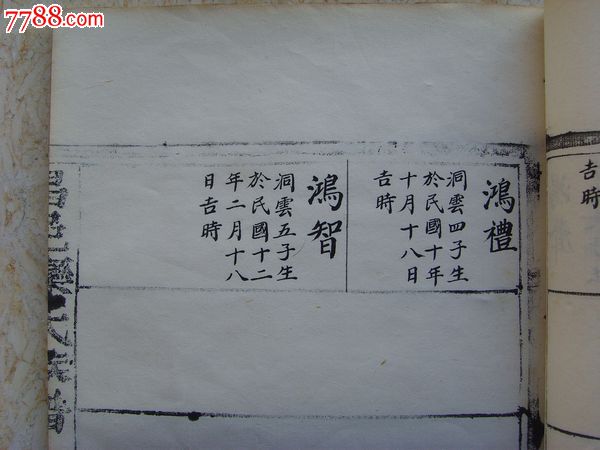 7788.com
吉時
鴻禮
洞雲四子生
於民國十年
十月十八日
吉時
鴻智
洞雲五子生
於民國十二
年二月十八
日吉時